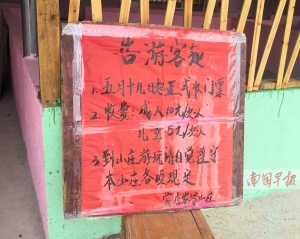 告游客知
1. 五月十九日起正式收门票
2. 收费：成人10元/次人
儿童5元/次人
3. 到山庄游玩请自觉遵守
本山庄各项规定
南国早报